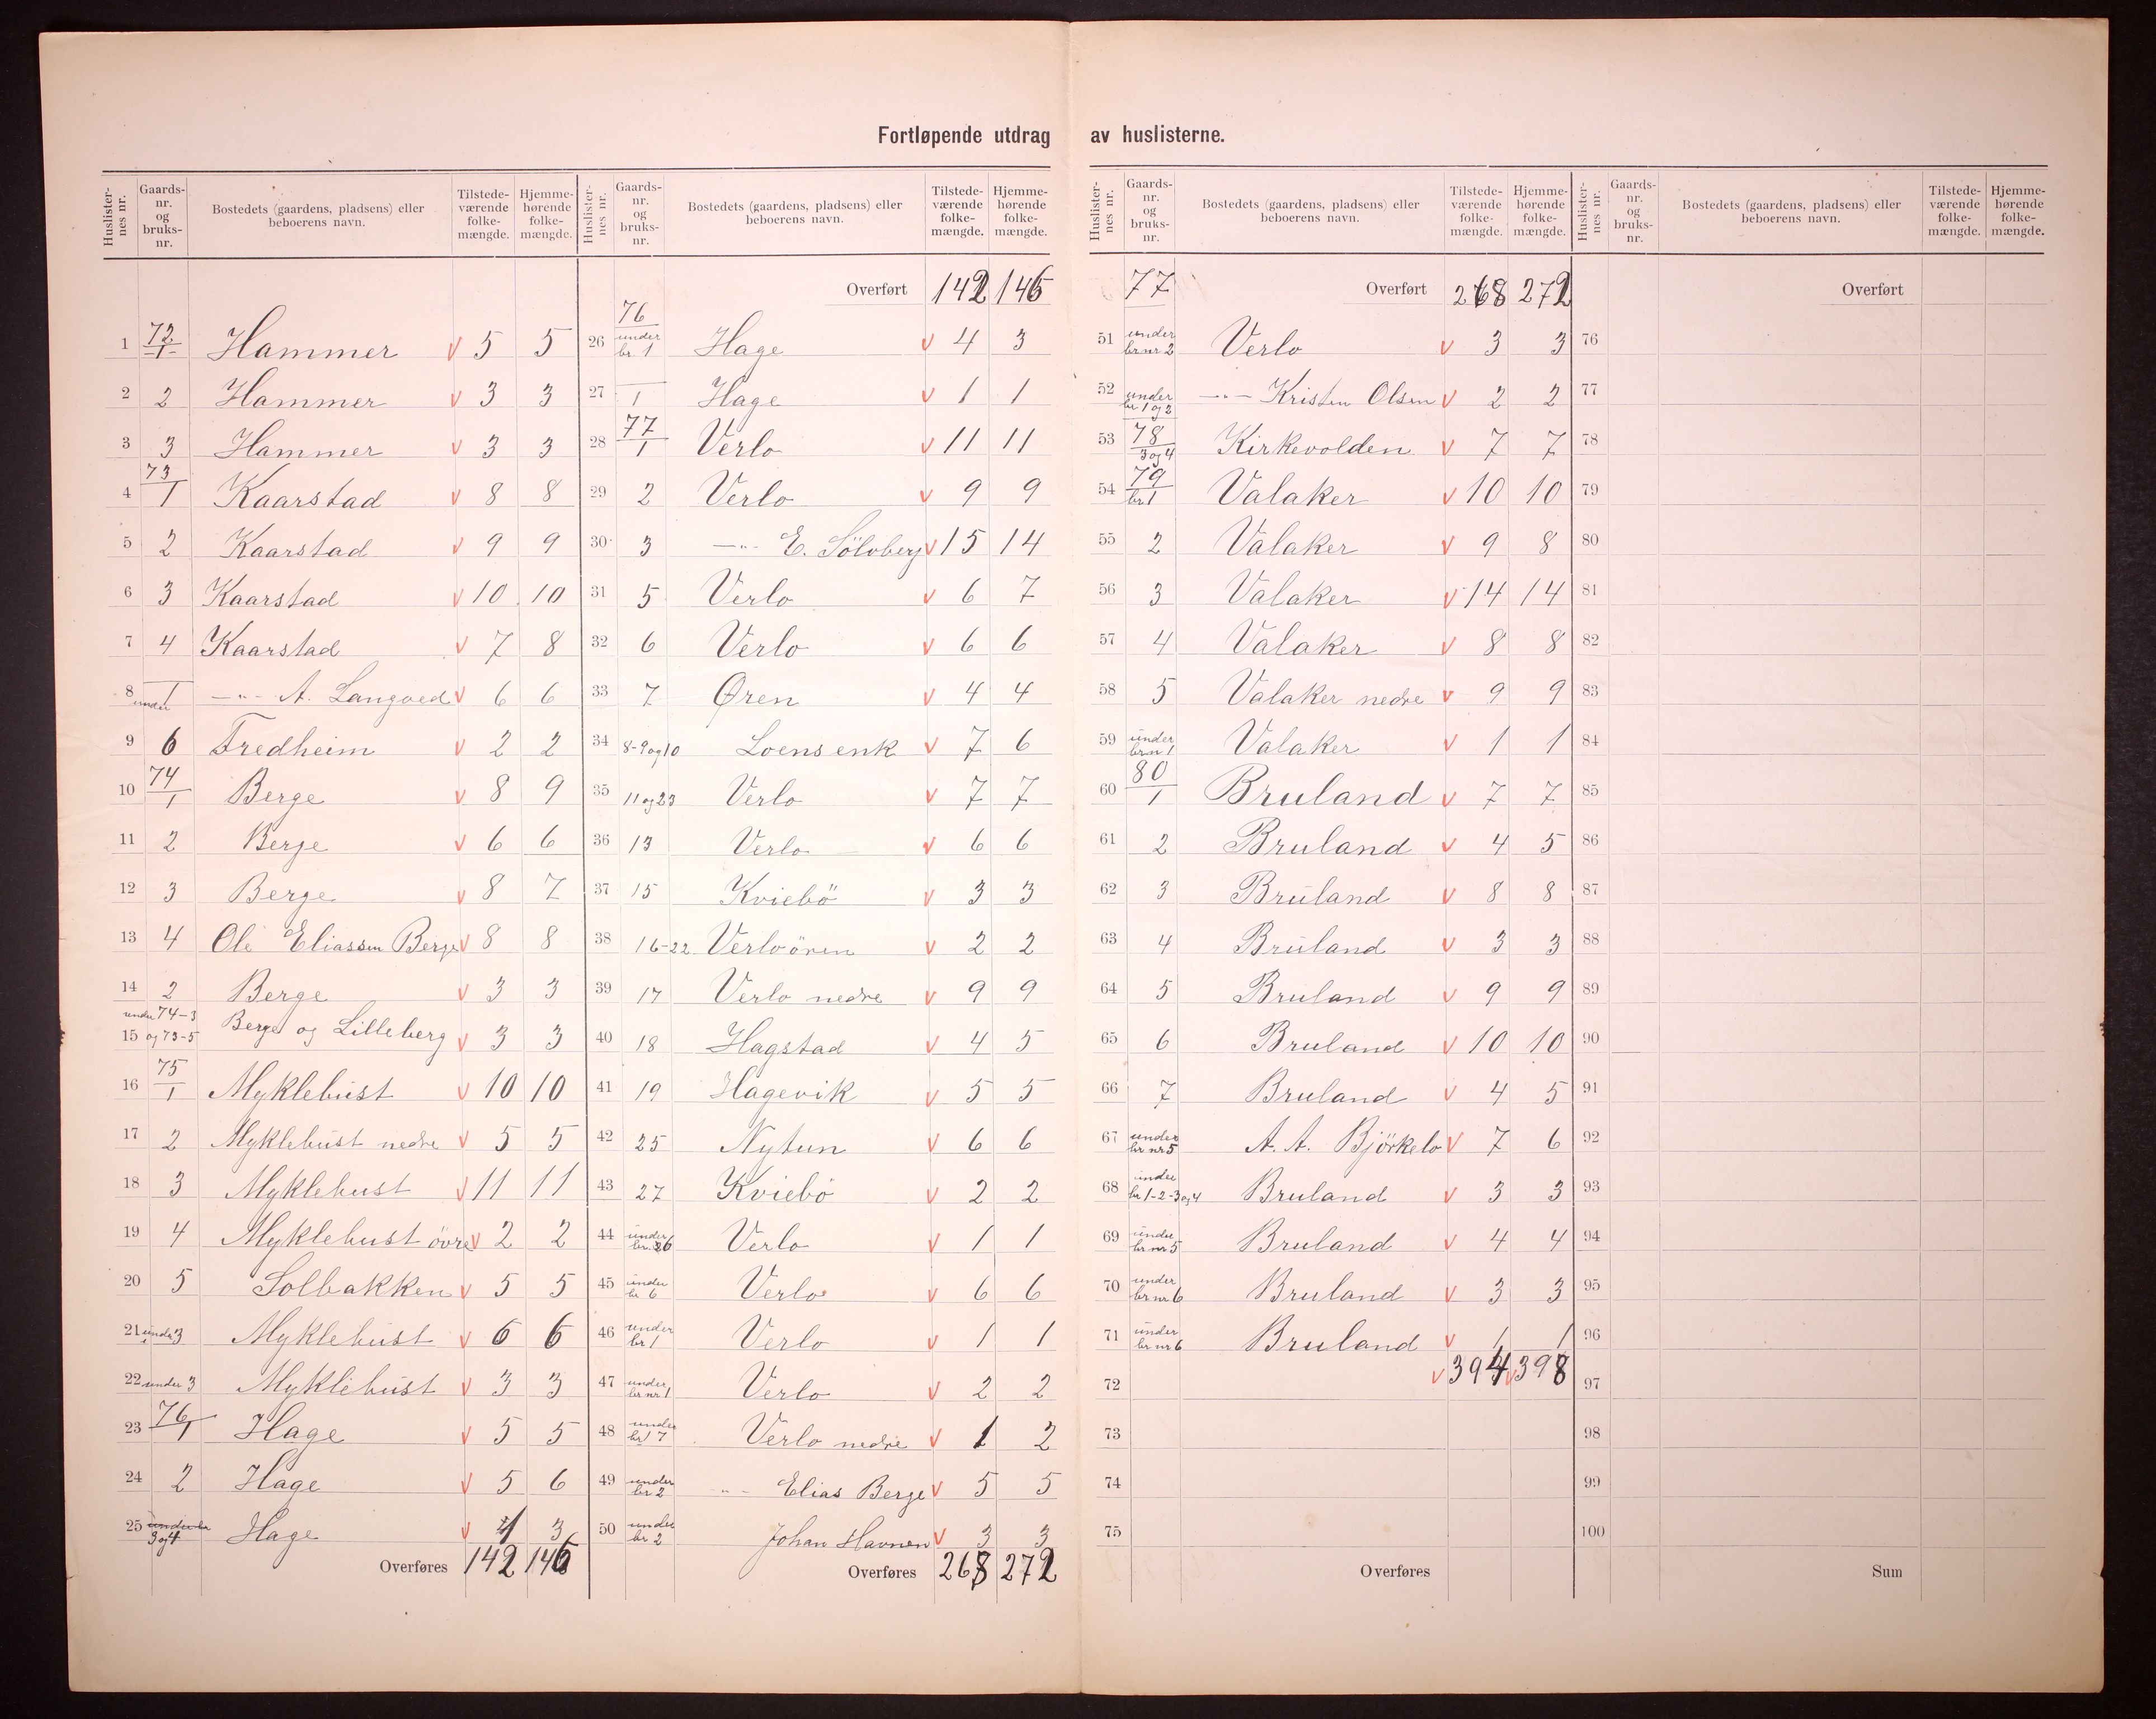 Fortløpende utdrag av huslisterne.
Huslister-nes nr. | Gaards-nr. og bruks-nr. | Bostedets (gaardens, pladsens) eller beboerens navn. | Tilstede-værende folke-mængde. | Hjemme-hørende folke-mængde.
1 72/1 Hammer v 5 5
2 2 Hammer v 3 3
3 3 Hammer v 3 3
4 73/1 Kaarstad v 8 8
5 2 Kaarstad v 9 9
6 3 Kaarstad v 10 10
7 4 Kaarstad v 7 8
8 under 1 —"— A. Langved v 6 6
9 6 Fredheim v 2 2
10 74/1 Berge v 8 9
11 2 Berge v 6 6
12 3 Berge v 8 7
13 4 Ole Eliassen Berge v 8 8
14 2 Berge v 3 3
15 under 74-3 og 73-5 Berge og Lilleberg v 3 3
16 75/1 Myklebust v 10 10
17 2 Myklebust nedre v 5 5
18 3 Myklebust v 11 11
19 4 Myklebust övre v 2 2
20 5 Solbakken v 5 5
21 under 3 Myklebust v 6 6
22 under 3 Myklebust v 3 3
23 76/1 Hage v 5 5
24 2 Hage v 5 6
25 under br 3 og 4 Hage v 3
Overføres 142 146
Huslister-nes nr. | Gaards-nr. og bruks-nr. | Bostedets (gaardens, pladsens) eller beboerens navn. | Tilstede-værende folke-mængde. | Hjemme-hørende folke-mængde.
Overført 142 146
26 76 under br. 1 Hage v 4 3
27 1 Hage v 1 1
28 77/1 Verlo v 11 11
29 2 Verlo v 9 9
30 3 —"— E. Sölvberg v 15 14
31 5 Verlo v 6 7
32 6 Verlo v 6 6
33 7 Øren v 4 4
34 8-9 og 10 Loensenk v 7 6
35 11 og 23 Verlo v 7 7
36 13 Verlo v 6 6
37 15 Kviebö v 3 3
38 16-22 Verloören v 2 2
39 17 Verlo nedre v 9 9
40 18 Hagstad v 4 5
41 19 Hagevik v 5 5
42 25 Nytun v 6 6
43 27 Kviebö v 2 2
44 under br. 26 Verlo v 1 1
45 under br 6 Verlo v 6 6
46 under br 1 Verlo v 1 1
47 under br nr 1 Verlo v 2 2
48 under br 17 Verlo nedre v 1 2
49 under br 2 —"— Elias Berge v 5 5
50 under br 2 Johan Havnen v 3 3
Overføres 268 272
Huslister-nes nr. | Gaards-nr. og bruks-nr. | Bostedets (gaardens, pladsens) eller beboerens navn. | Tilstede-værende folke-mængde. | Hjemme-hørende folke-mængde.
77 Overført 268 272
51 under br nr 2 Verlo v 3 3
52 under br 1 og 2 —"— Kristen Olsen v 2 2
53 78/3 og 4 Kirkevolden v 7 7
54 79/br 1 Valaker v 10 10
55 2 Valaker v 9 8
56 3 Valaker v 14 14
57 4 Valaker v 8 8
58 5 Valaker nedre v 9 9
59 under br n 1 Valaker v 1 1
60 80/1 Bruland v 7 7
61 2 Bruland v 4 5
62 3 Bruland v 8 8
63 4 Bruland v 3 3
64 5 Bruland v 9 9
65 6 Bruland v 10 10
66 7 Bruland v 4 5
67 under br nr 5 A. A. Björkelo v 7 6
68 under br 1-2-3 og 4 Bruland v 3 3
69 under br nr 5 Bruland v 4 4
70 under br nr 6 Bruland v 3 3
71 under br nr 6 Bruland v 1 1
72 v 394 v 398
73
74
75
Overføres
Huslister-nes nr. | Gaards-nr. og bruks-nr. | Bostedets (gaardens, pladsens) eller beboerens navn. | Tilstede-værende folke-mængde. | Hjemme-hørende folke-mængde.
Overført
76
77
78
79
80
81
82
83
84
85
86
87
88
89
90
91
92
93
94
95
96
97
98
99
100
Sum